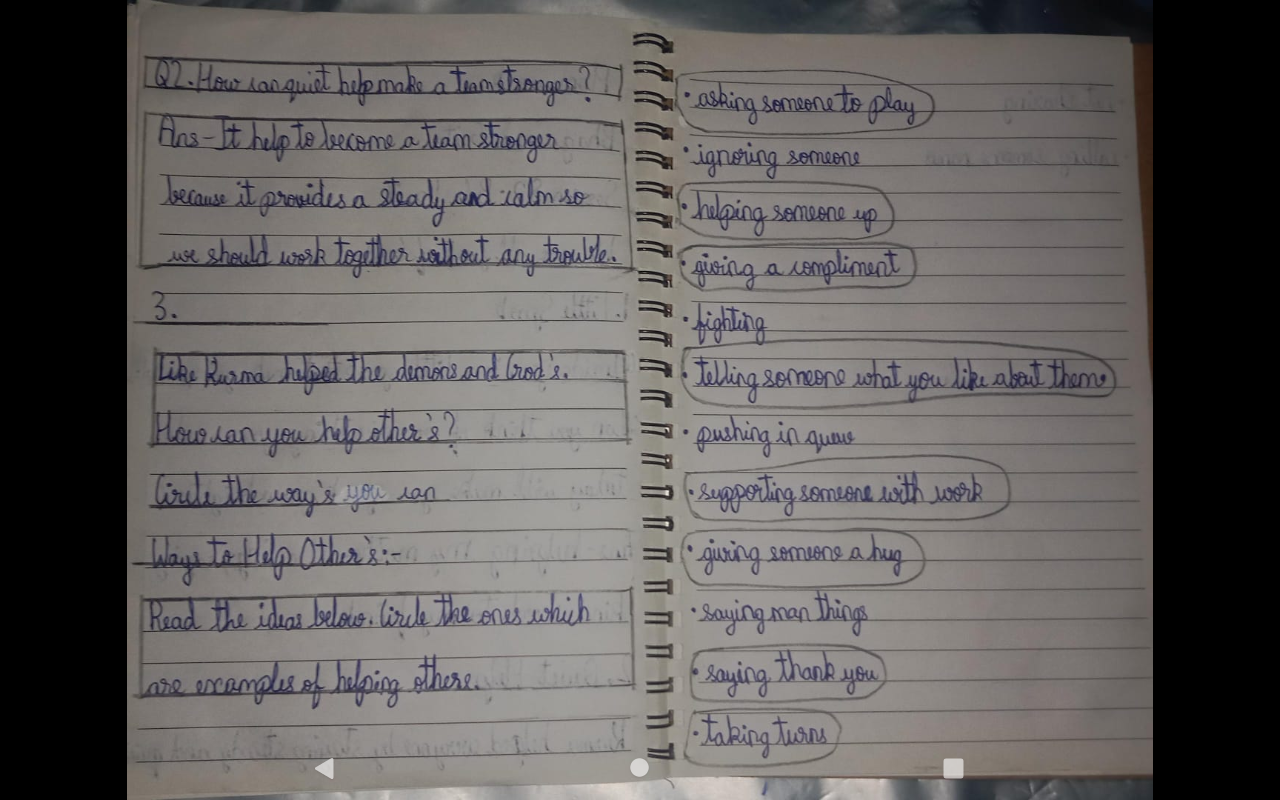 Q2. How can quiet help make a team stronger?
Ans - It help to become a team stronger
because it provides a steady and calm so
we should work together without any trouble.
3.
Like Kurma helped the demons and God's.
How can you help other's?
Circle the way's you can
Ways to Help Other's:-
Read the ideas below. Circle the ones which
are examples of helping othere.
• asking someone to play
• ignoring someone
• helping someone up
• giving a compliment
• fighting
• telling someone what you like about them
• pushing in queue
• supporting someone with work
• giving someone a hug
• saying man things
• saying thank you
• taking turns